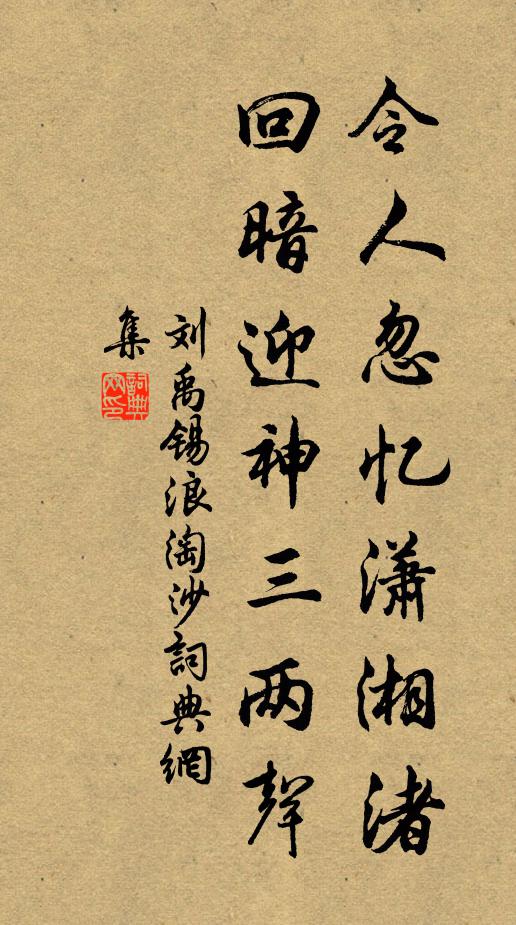 令人忽忆潇湘渚
回暗迎神三两聲
刘禹锡浪淘沙詞典網
集
詞典
网印